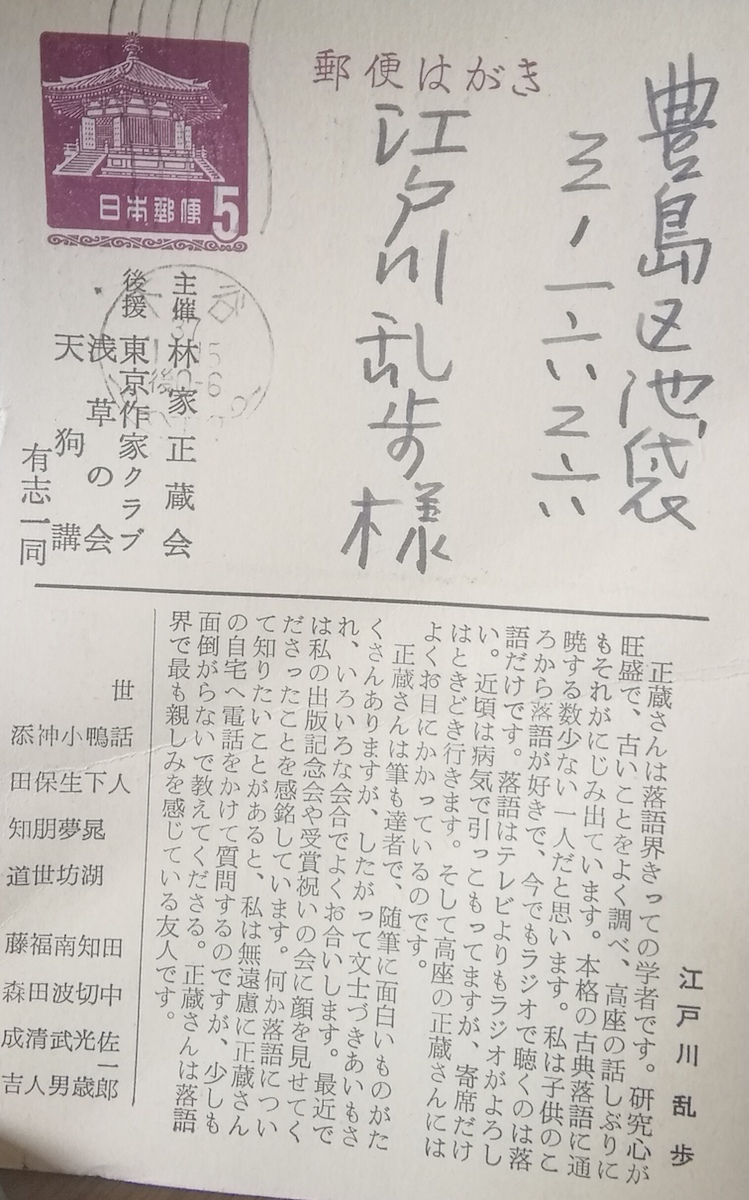 郵便はがき
日本郵便 5
豊島区池袋
三ノ一六二六
江戸川乱歩様
主催 林家正蔵会
後援 東京作家クラブ
浅草の会
天狗講
有志一同
江戸川乱歩
正蔵さんは落語界きっての学者です。研究心が
旺盛で、古いことをよく調べ、高座の話しぶりに
もそれがにじみ出ています。本格の古典落語に通
暁する数少ない一人だと思います。私は子供のこ
ろから落語が好きで、今でもラジオで聴くのは落
語だけです。落語はテレビよりもラジオがよろし
い。近頃は病気で引っこもってますが、寄席だけ
はときどき行きます。そして高座の正蔵さんには
よくお目にかかっているのです。
正蔵さんは筆も達者で、随筆に面白いものがた
くさんありますが、したがって文士づきあいもさ
れ、いろいろな会合でよくお合いします。最近で
は私の出版記念会や受賞祝いの会に顔を見せてく
ださったことを感銘しています。何か落語につい
て知りたいことがあると、私は無遠慮に正蔵さん
の自宅へ電話をかけて質問するのですが、少しも
面倒がらないで教えてくださる。正蔵さんは落語
界で最も親しみを感じている友人です。
世話人 田中佐一郎
鴨下晁湖 知切光歳
小生夢坊 南波武男
神保朋世 福田清人
添田知道 藤森成吉